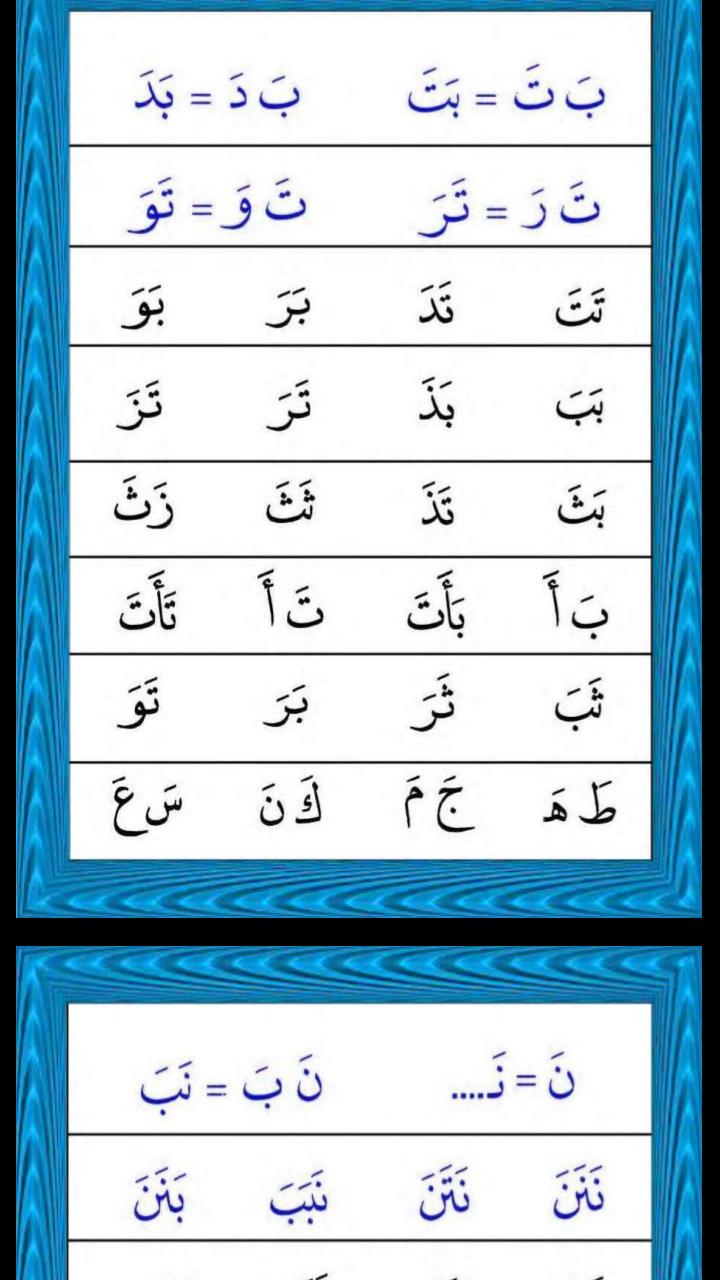 بَ تَ = بَتَ بَ دَ = بَدَ
تَ رَ = تَرَ تَ وَ = تَوَ
تَتَ تَدَ بَرَ بَوَ
بَبَ بَذَ تَرَ تَزَ
بَثَ تَذَ ثَثَ زَثَ
بَ أَ بَأَتَ تَ أَ تَأَتَ
ثَبَ ثَرَ بَرَ تَوَ
طَ هَ جَ مَ كَ نَ سَ عَ
نَ = نَـ..... نَ بَ = نَبَ
نَنَنَ نَتَنَ نَبَبَ بَنَنَ